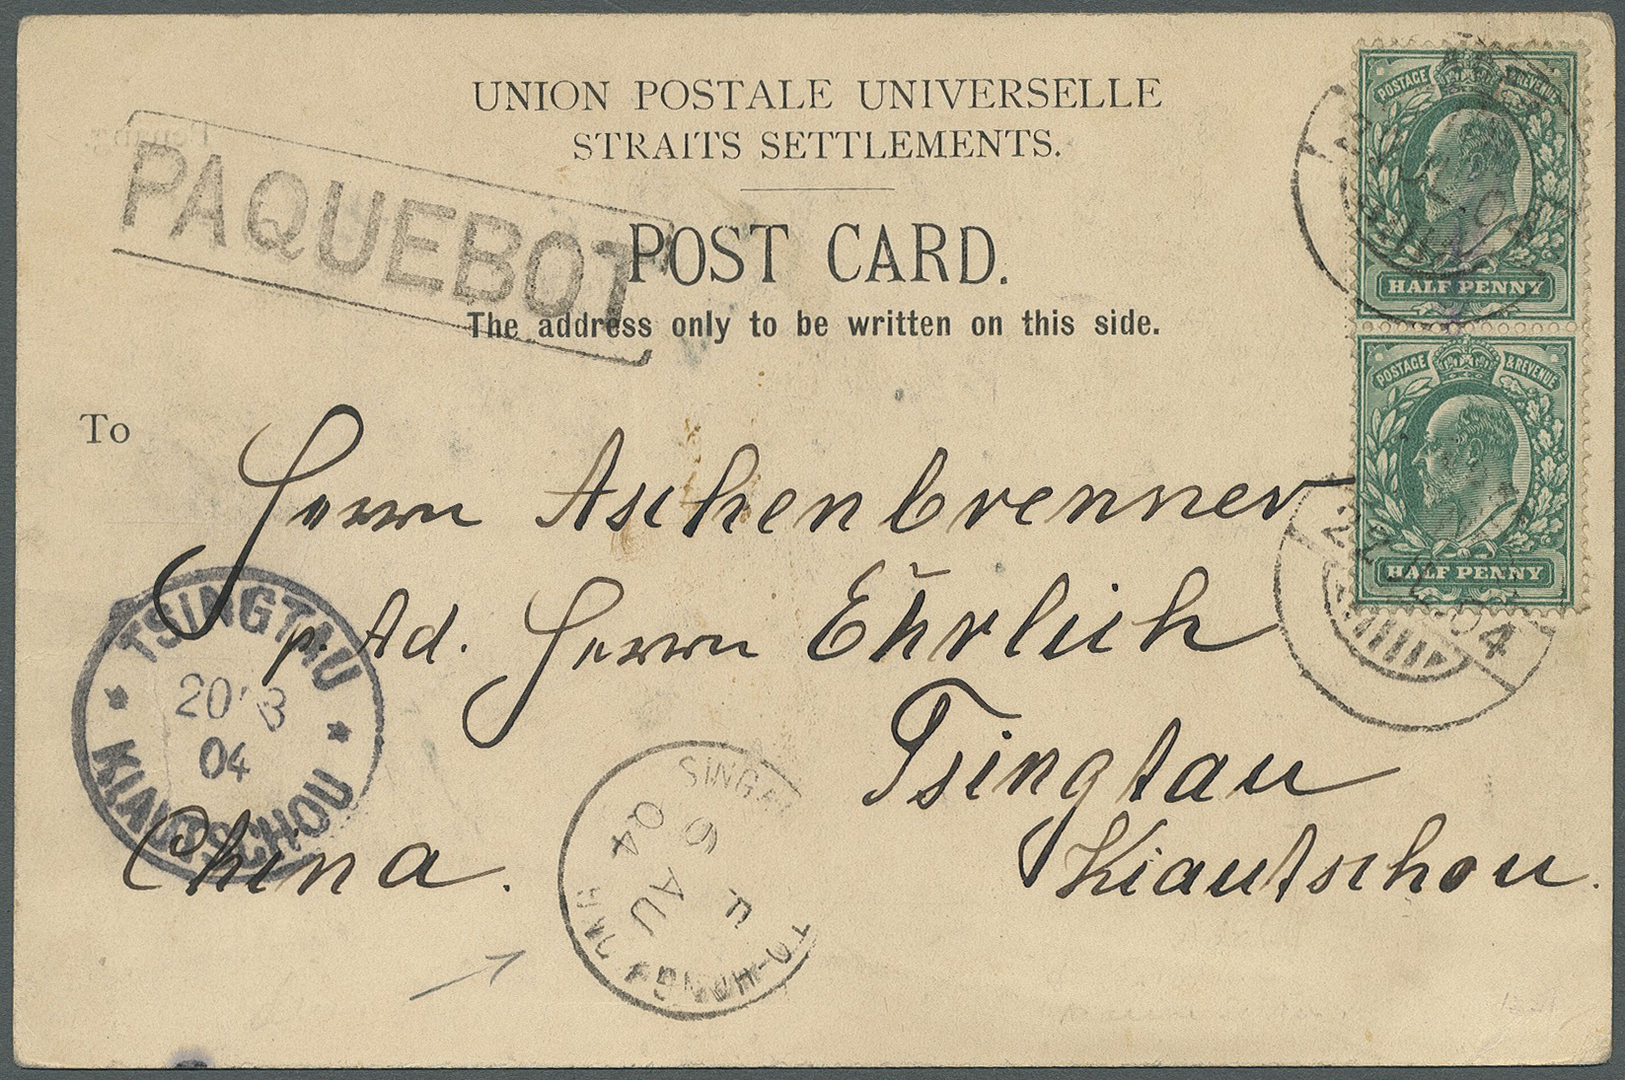 UNION POSTALE UNIVERSELLE
STRAITS SETTLEMENTS.
PAQUEBOT
POST CARD.
The address only to be written on this side.
POSTAGE & REVENUE
HALF PENNY
POSTAGE & REVENUE
HALF PENNY
To
Herrn Aschenbrenner
p. Ad. Herrn Ehrlich
Tsingtau
Kiautschou.
China.
TSINGTAU
20 8
04
KIAUTSCHOU
SINGA
6 AU
04
TO-HONGK
04